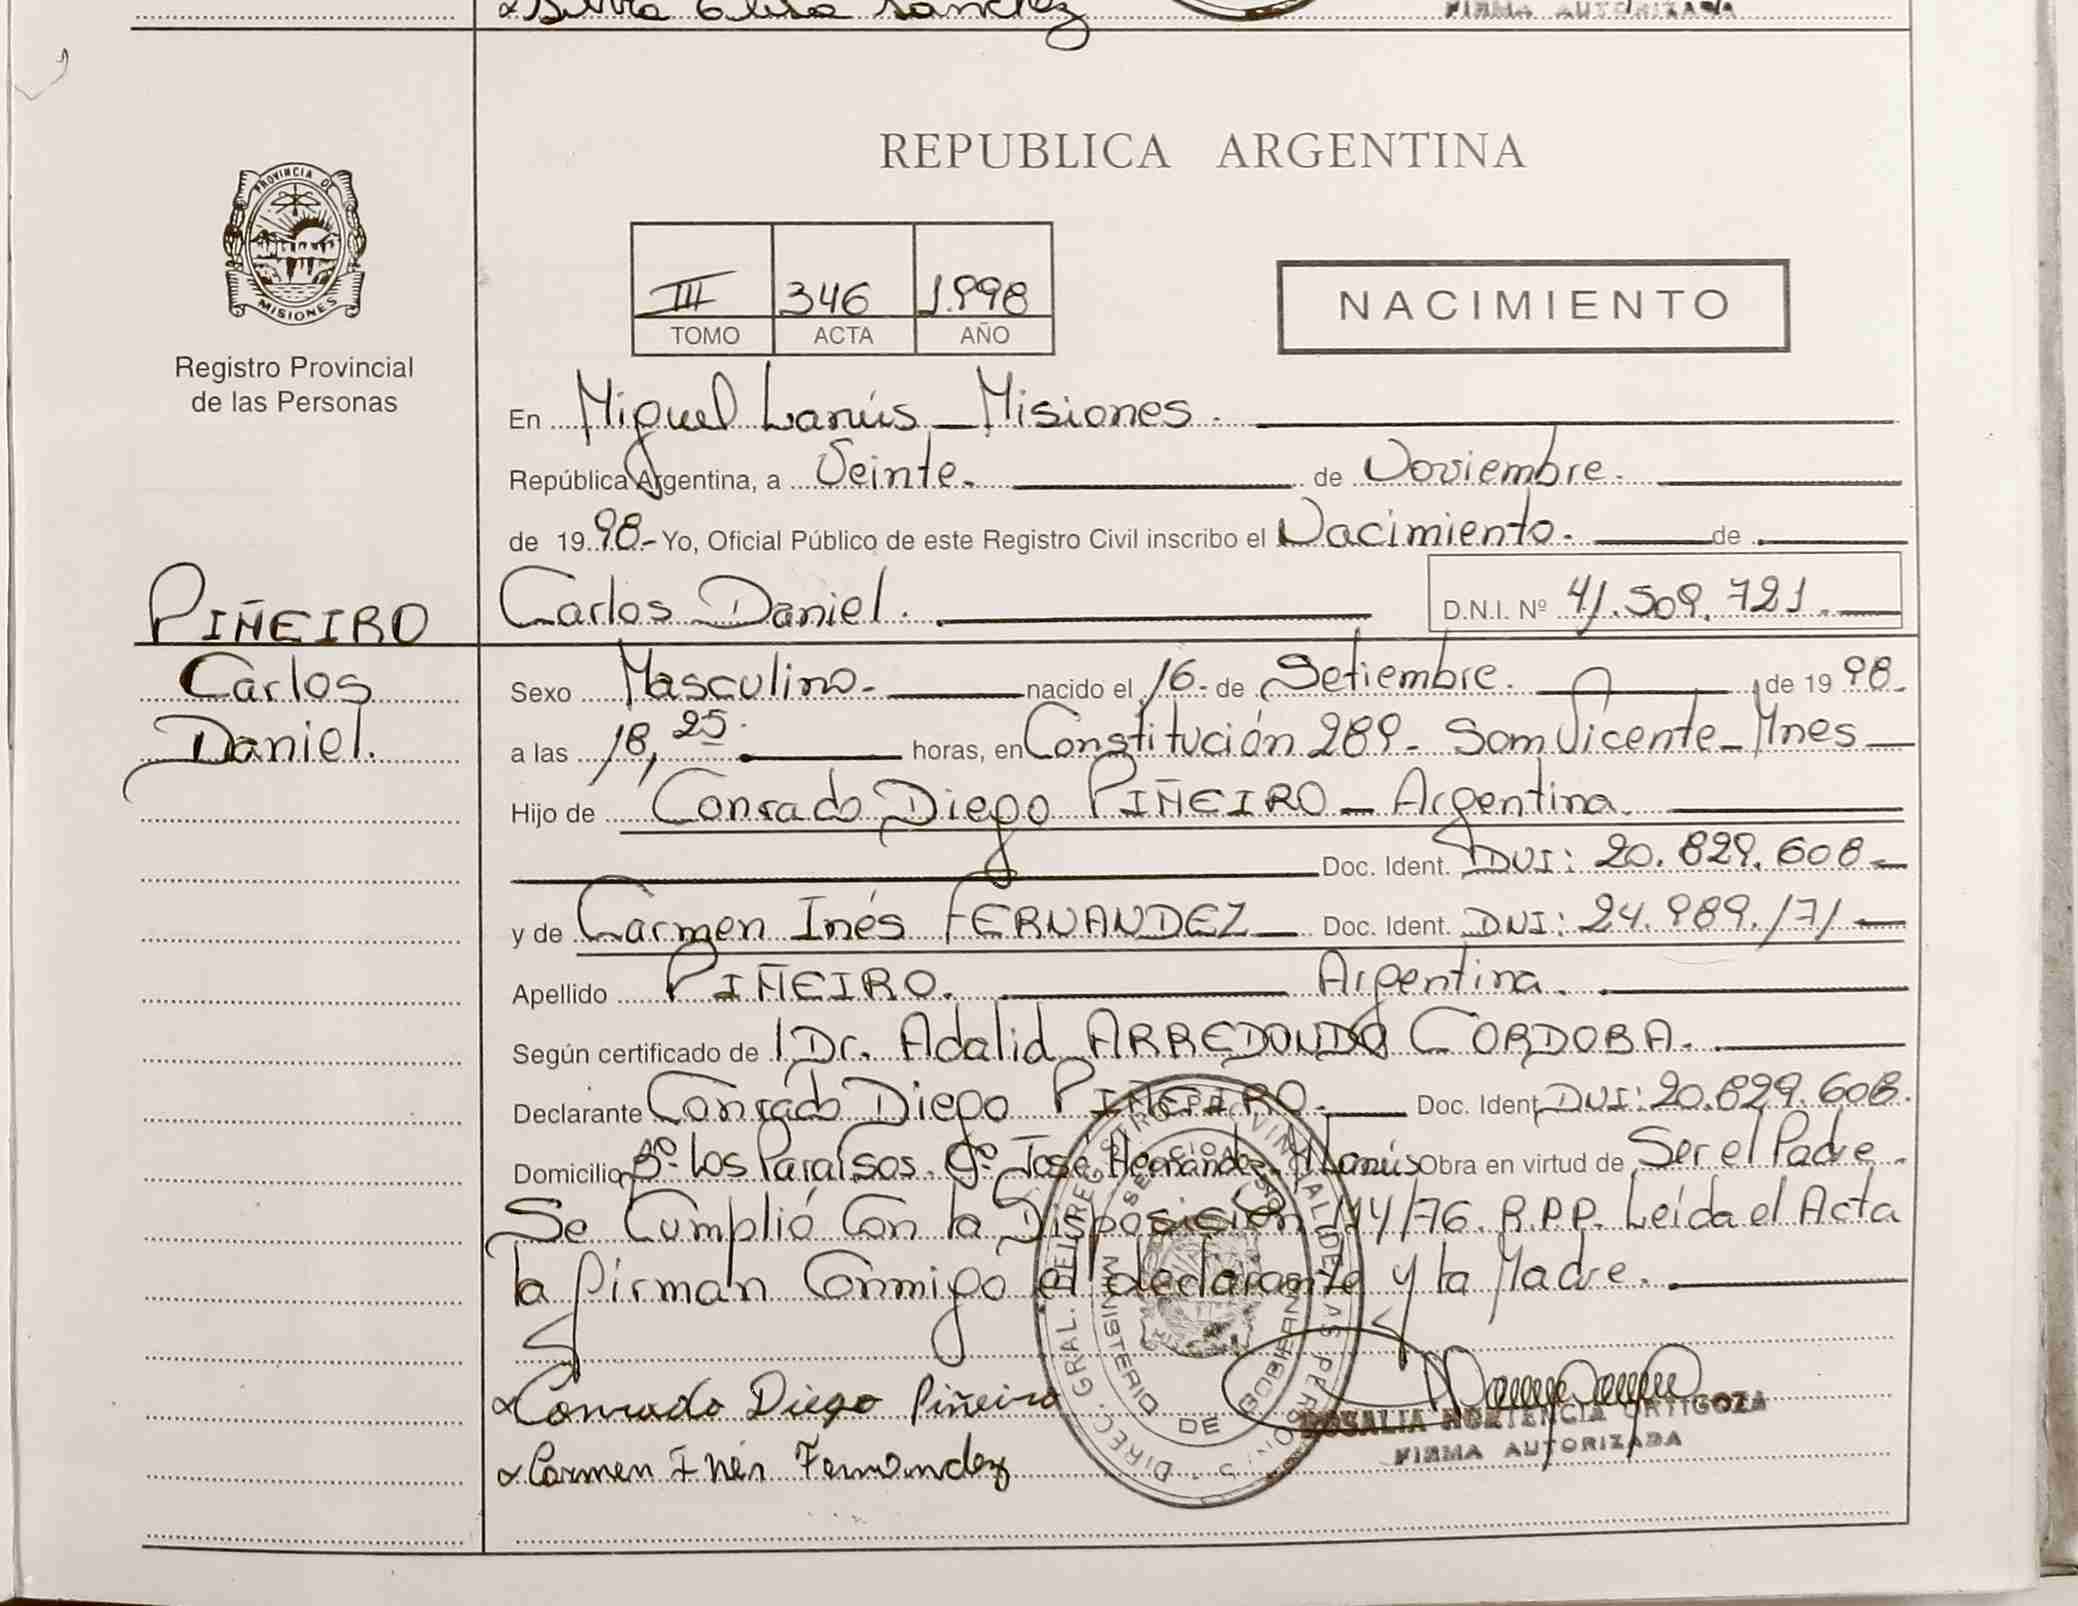 Silvia Elisa Sanchez
FIRMA AUTORIZADA
PROVINCIA DE
MISIONES
Registro Provincial
de las Personas
REPUBLICA ARGENTINA
III 346 1.998
TOMO ACTA AÑO
NACIMIENTO
En Miguel Lanús - Misiones.
República Argentina, a Veinte. de Noviembre.
de 1998.- Yo, Oficial Público de este Registro Civil inscribo el Nacimiento. de
PIÑEIRO
Carlos
Daniel.
Carlos Daniel. D.N.I. Nº 41.509.721.
Sexo Masculino. nacido el 16. de Setiembre. de 1998.
a las 18,25. horas, en Constitución 289- San Vicente - Mnes
Hijo de Conrado Diego PIÑEIRO - Argentina.
Doc. Ident. DNI: 20.829.608-
y de Carmen Inés FERNANDEZ - Doc. Ident. DNI: 24.989.171-
Apellido PIÑEIRO. Argentina.
Según certificado de Dr. Adalid ARREDONDO CORDOBA.
Declarante Conrado Diego PIÑEIRO. Doc. Ident. DNI: 20.829.608.
Domicilio Bº. Los Paraísos. Cº. José Hernández. M. Lanús Obra en virtud de Ser el Padre.
Se Cumplió Con la Disposición 114/76. R.P.P. Leída el Acta
la firman Conmigo el declarante y la Madre.
Conrado Diego Piñeiro
Carmen Inés Fernandez
DIREC. GRAL. DEL REGISTRO PROVINCIAL DE LAS PERSONAS
MINISTERIO DE GOBIERNO
ROSALIA HORTENCIA ORTIGOZA
FIRMA AUTORIZADA